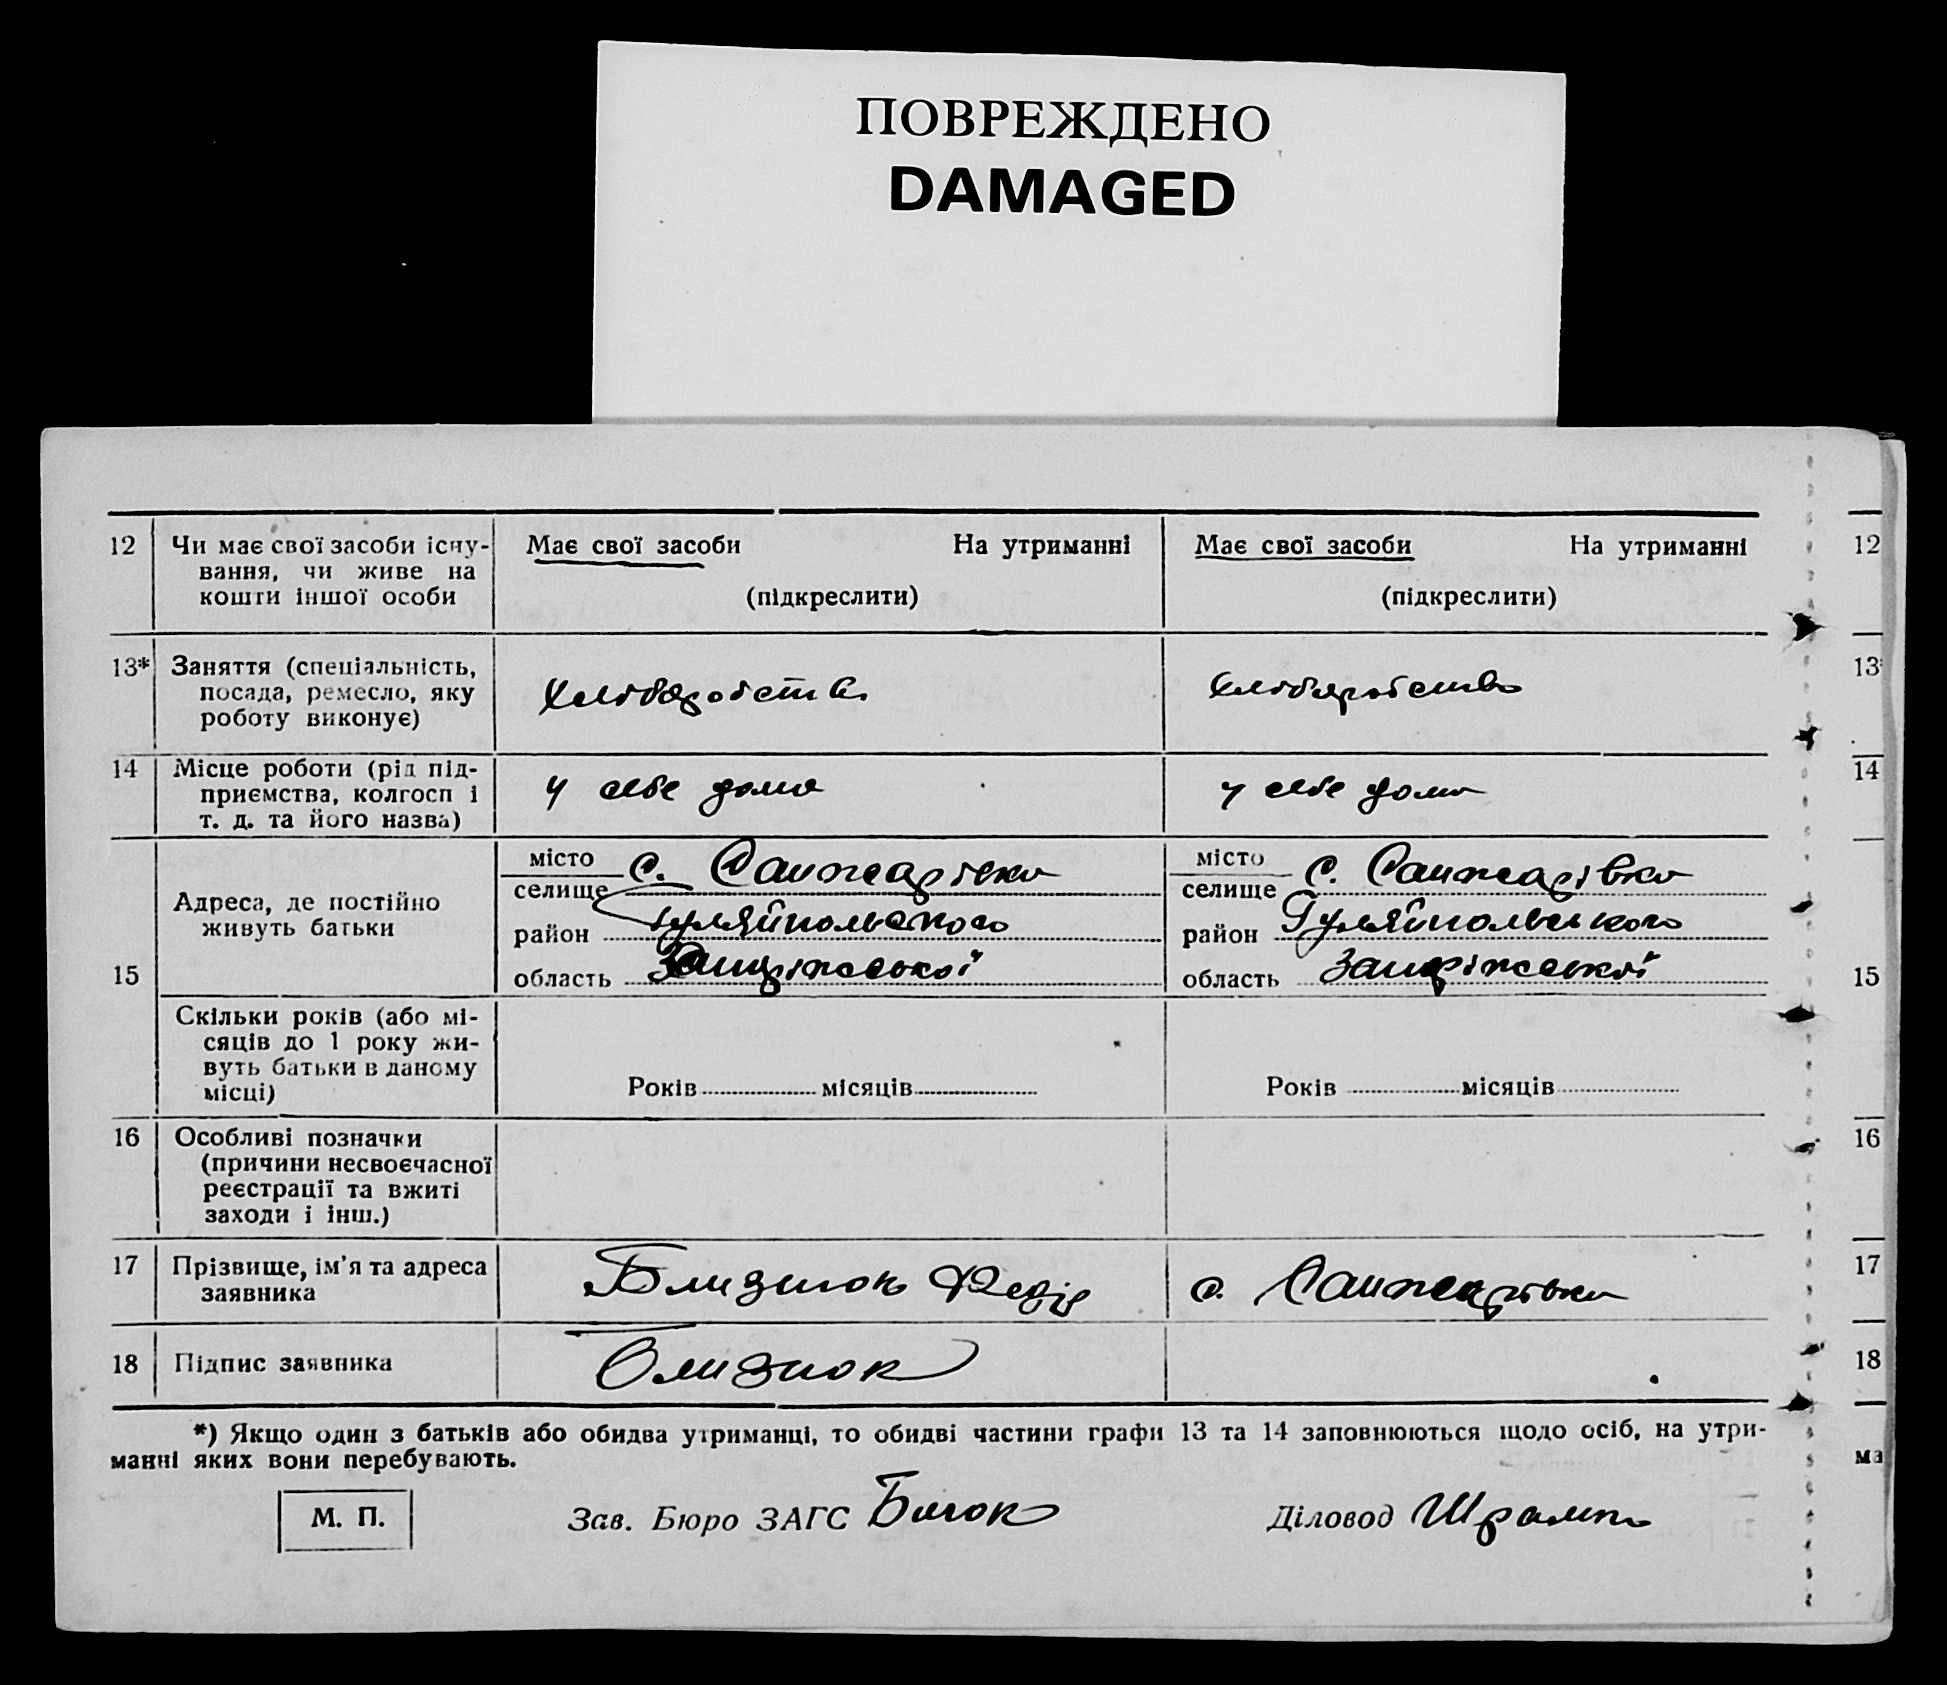 ПОВРЕЖДЕНО
DAMAGED
12 Чи має свої засоби існу-
вання, чи живе на
кошти іншої особи
Має свої засоби На утриманні
(підкреслити)
Має свої засоби На утриманні
(підкреслити)
12
13* Заняття (спеціальність,
посада, ремесло, яку
роботу виконує)
Хліборобство
Хліборобство
13*
14 Місце роботи (рід під-
приємства, колгосп і
т. д. та його назва)
у себе дома
у себе дома
14
15
Адреса, де постійно
живуть батьки
місто
селище с. Санжарівка
район Гуляйпольского
область Запоріжської
місто
селище с. Санжарівка
район Гуляйпольського
область Запоріжської
15
Скільки років (або мі-
сяців до 1 року жи-
вуть батьки в даному
місці)
Років місяців
Років місяців
16 Особливі позначки
(причини несвоєчасної
реєстрації та вжиті
заходи і інш.)
16
17 Прізвище, ім'я та адреса
заявника
Близнюк Федір
с. Санжарівка
17
18 Підпис заявника
Близнюк
18
*) Якщо один з батьків або обидва утриманці, то обидві частини графи 13 та 14 заповнюються щодо осіб, на утри-
манні яких вони перебувають.
ма
М. П.
Зав. Бюро ЗАГС
Діловод